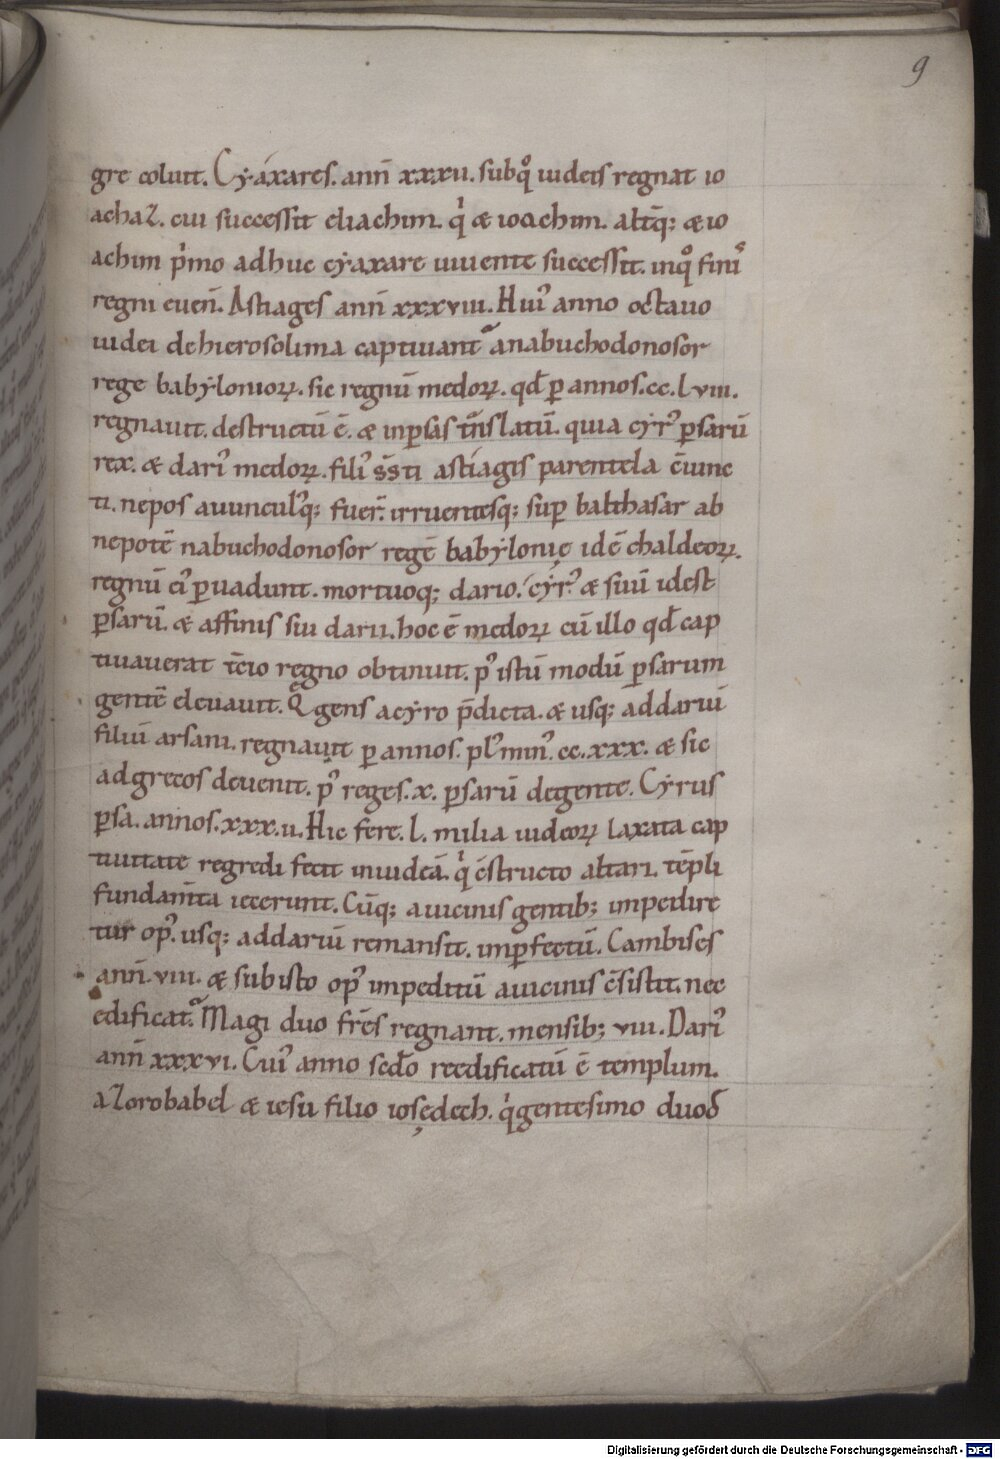 9
gre coluit. Cyaxares. ann̄ xxxii. sub qͦ iudeis regnat io
achaz. cui successit eliachim. qͥ & ioachim. alt̄q; & io
achim pͥmo adhuc cyaxare uiuente successit. in qͦ finiꝰ
regni euen̄. Astiages ann̄ xxxviii. Huiꝰ anno octauo
iudei de hierosolima captiuant᷑ a nabuchodonosor
rege babyloniorꝝ. sic regnū medorꝝ. qđ ꝑ annos. cc. lviii.
regnauit. destructū ē. & in ꝑsas tͣnslatū. quia cyrꝰ ꝑsarū
rex. & dariꝰ medorꝝ. filiꝰ s̄s̄ti astiagis parentela c̄iunc
ti. nepos auunculꝰq; fuer̄. irruentesq; suꝑ balthasar ab
nepotē nabuchodonosor regē babylonię idē chaldeorꝝ.
regnū eiꝰ ꝑuadunt. mortuoq; dario. cyrꝰ & suū idest
ꝑsarū. & affinis sui darii. hoc ē medorꝝ cū illo qđ cap
tiuauerat t̄cio regno obtinuit. pꝰ istū modū ꝑsarum
gentē eleuauit. Q̄ gens a cyro p̄dicta. & usq; ad dariū
filiū arsami. regnauit ꝑ annos. plꝰ minꝰ. cc. xxx. & sic
ad grecos deuenit. pꝰ reges. x. ꝑsarū de gente. Cyrus
ꝑsa. annos. xxx. ii. Hic fere. l. milia iudeorꝝ laxata cap
tiuitate regredi fecit in iudeā. qͥ c̄structo altari. tēpli
fundam̄ta iecerunt. Cūq; a uicinis gentib; impedire
tur opꝰ. usq; ad dariū remansit. inꝑfectū. Cambises
ann̄. viii. & sub isto opꝰ impeditū a uicinis c̄sistit. nec
edificat᷑. Magi duo fr̄es regnant. mensib; viii. Dariꝰ
ann̄ xxxvi. Cuiꝰ anno sēdo reedificatū ē templum.
a Zorobabel & iesu filio iosedech. qͥgentesimo duođ
Digitalisierung gefördert durch die Deutsche Forschungsgemeinschaft - DFG